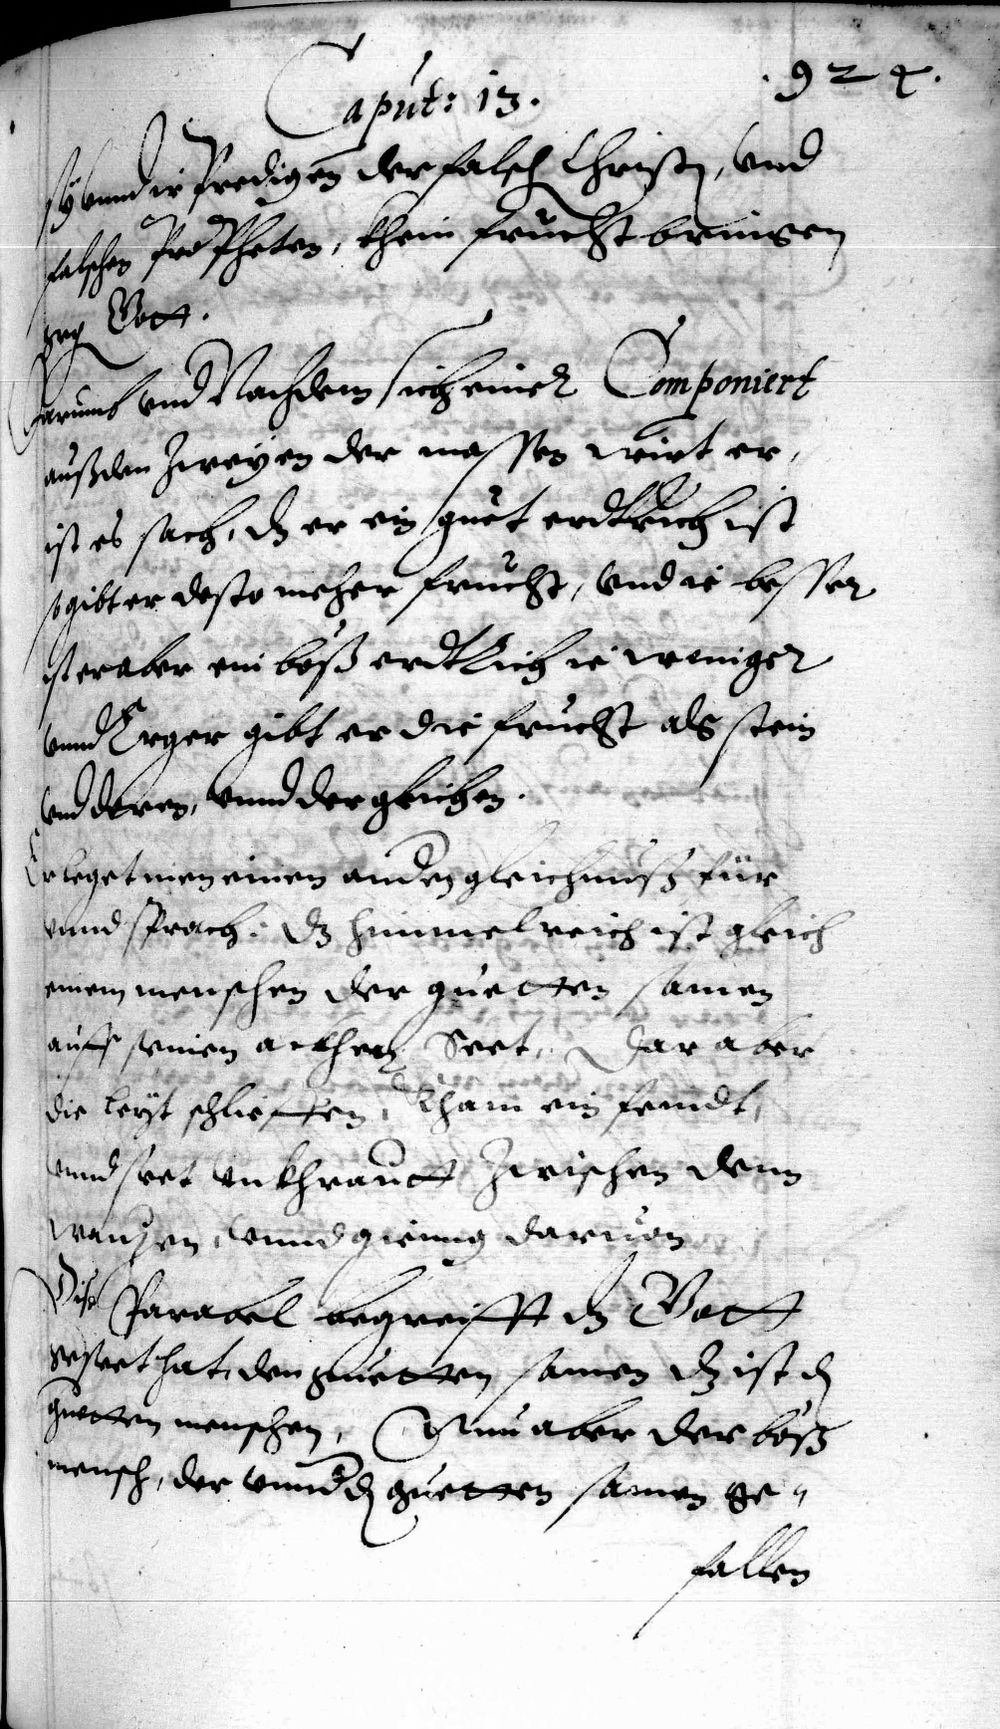 Caput: 13.
.924.
sÿ vnnd ir Predigen der falsch Christ, vnd
falschen Propheten, khein frucht bringen
geg Gott.
Darumb vnd Nachdem sich einer Componiert
auß den Zweyen der massen wirt er,
ist es sach, dz er ein guet erdtrich ist
so gibt er desto meher frucht, vnd ie besser
ist er aber ein böß erdtrich ie weniger
vnnd Erger gibt er die frucht als stein
vnd deren, vnnd dergleichen.
Er leget inen einen anden gleichnuß für
vnnd sprach: dz himmelreich ist gleich
einem menschen der guetten samen
auff seinen ackher Seet, Dar aber
die leyt schlieffen, kham ein feindt,
vnnd seet vnkhrautt Zwischen denn
waitzen, vnnd gieng daruon
Dise Parabel begreifft dz Gott
geseet hat den guetten samen dz ist d
guetten menschen, Nun aber der böß
mensch, der vnnd d guetten samen ge-
fallen